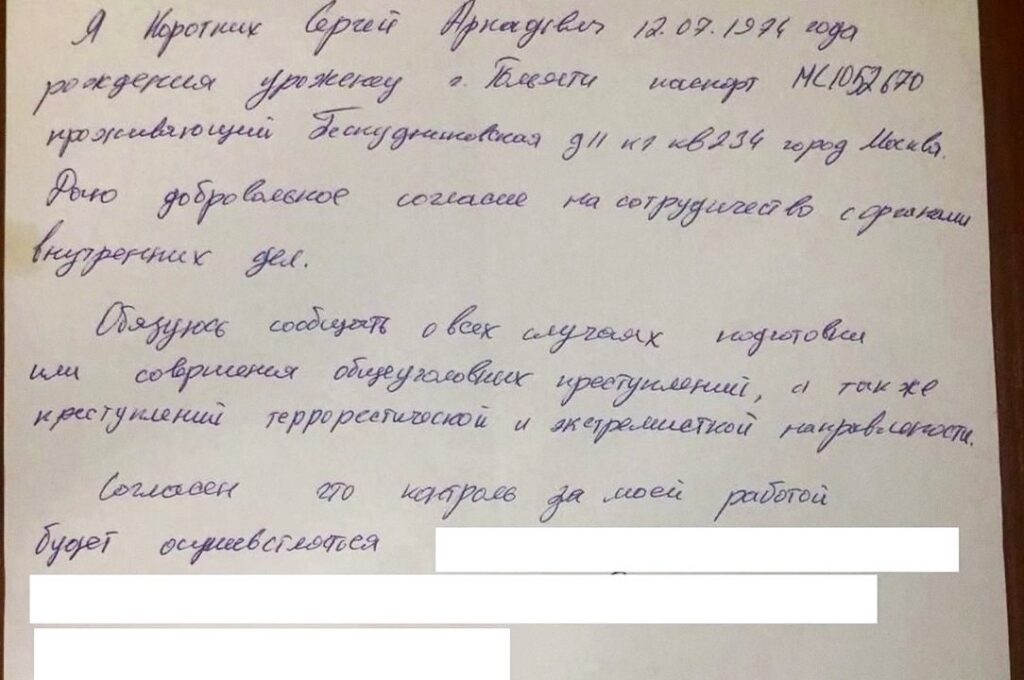 Я Коротких Сергей Аркадьевич 12.07.1974 года
рождения уроженец г. Тольятти паспорт МС1052670
проживающий Бескудниковская д11 к1 кв234 город Москва.
Даю добровольное согласие на сотрудичество с органами
внутренних дел.
Обязуюсь сообщать о всех случаях подготовки
или совершения общеуголовных преступлений, а так же
преступлений террорестической и экстремисткой направлености.
Согласен что контроль за моей работой
будет